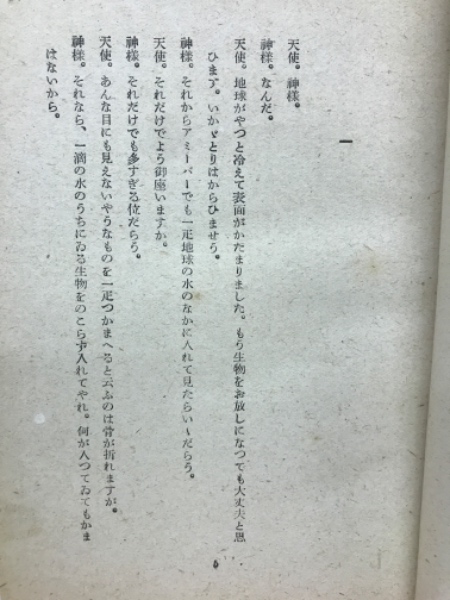 一
天使。神様。
神様。なんだ。
天使。地球がやつと冷えて表面がかたまりました。もう生物をお放しになつても大丈夫と思
ひます。いかゞとりはからひませう。
神様。それからアミーバーでも一疋地球の水のなかに入れて見たらいゝだらう。
天使。それだけでよう御座いますか。
神様。それだけでも多すぎる位だらう。
天使。あんな目にも見えないやうなものを一疋つかまへると云ふのは骨が折れますが。
神様。それなら、一滴の水のうちにゐる生物をのこらず入れてやれ。何が入つてゐてもかま
はないから。
5